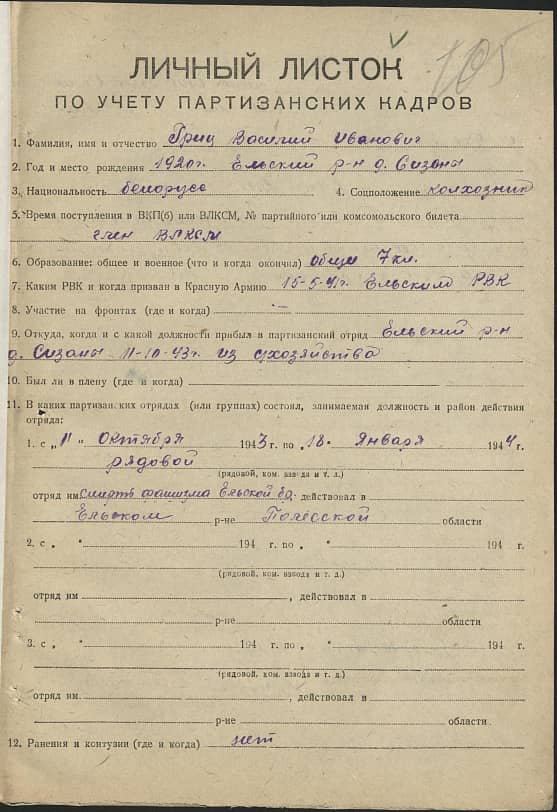 105
ЛИЧНЫЙ ЛИСТОК
ПО УЧЕТУ ПАРТИЗАНСКИХ КАДРОВ
1. Фамилия, имя и отчество Гриц Василий Иванович
2. Год и место рождения 1920г. Ельский р-н д. Сизаны
3. Национальность белорусс 4. Соцположение колхозник
5. Время поступления в ВКП(б) или ВЛКСМ, № партийного или комсомольского билета
член ВЛКСМ
6. Образование: общее и военное (что и когда окончил) общее 7 кл.
7. Каким РВК и когда призван в Красную Армию 15-5-41г. Ельским РВК
8. Участие на фронтах (где и когда) —
9. Откуда, когда и с какой должности прибыл в партизанский отряд Ельский р-н
д. Сизаны 11-10-43г. из с/хозяйства
10. Был ли в плену (где и когда)
11. В каких партизанских отрядах (или группах) состоял, занимаемая должность и район действия
отряда:
1. с „11“ октября 1943г. по „18. Января 1944г.
рядовой
(рядовой, ком. взвода и т. л.)
отряд им. смерть фашизма Ельской бр. действовал в
Ельском р-не Полесской области
2. с „ “ 194 г. по „ “ 194 г.
(рядовой, ком. взвода и т. д.)
отряд им , действовал в
р-не области
3. с „ “ 194 г. по „ “ 194 г.
(рядовой, ком. взвода и т. д.)
отряд им. , действовал в
р-не области.
12. Ранения и контузии (где и когда) нет